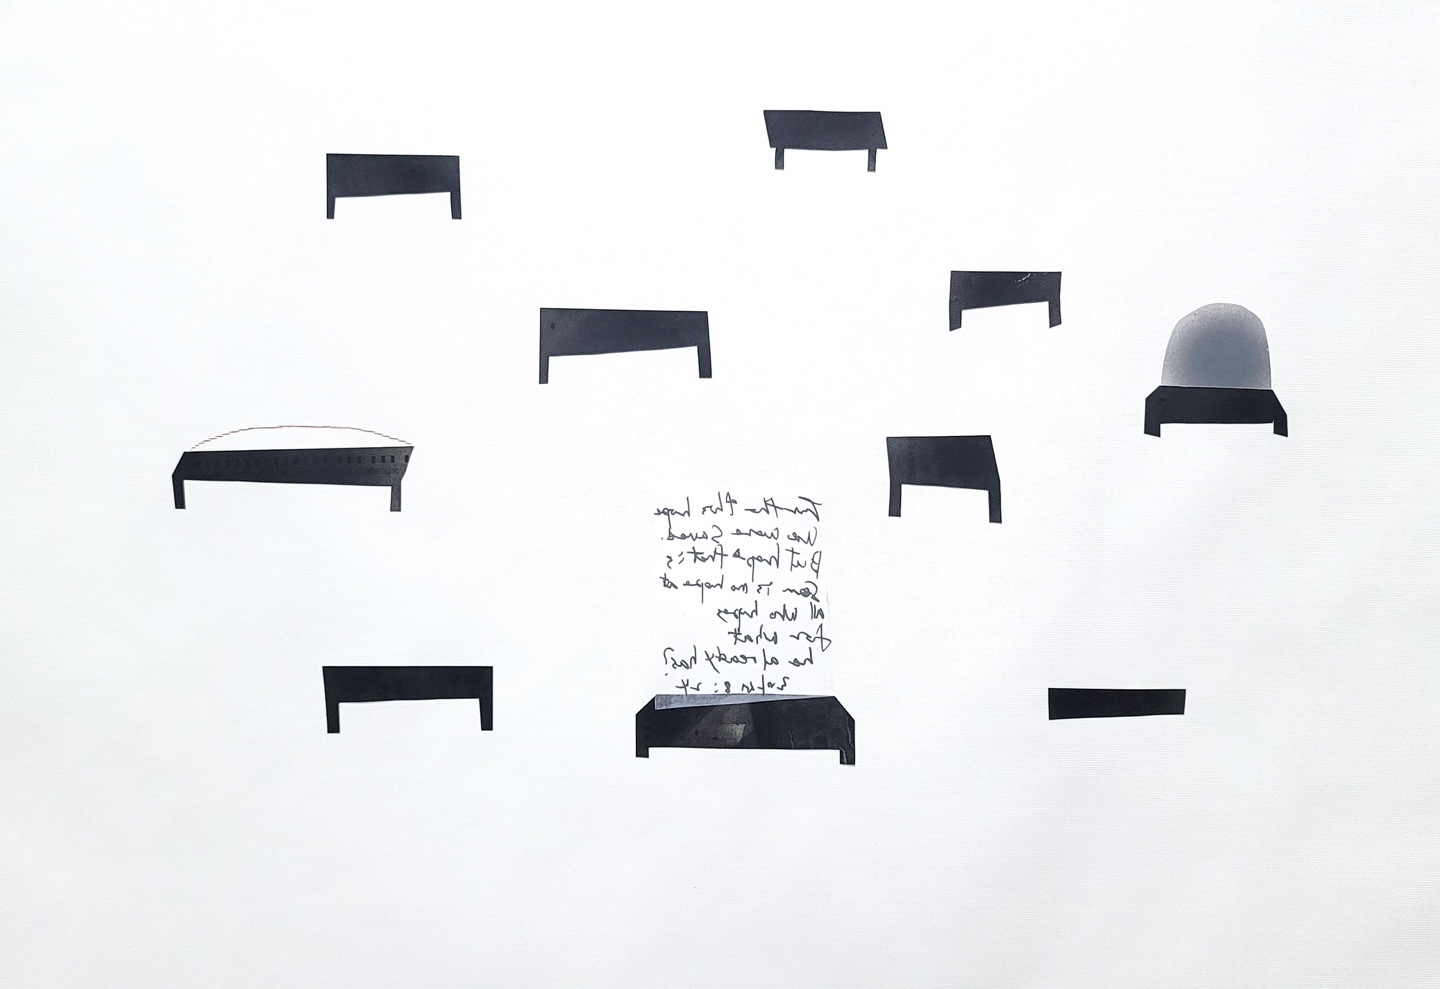 For in this hope
we were saved.
But hope that is
seen is no hope at
all who hopes
for what
he already has?
8:24